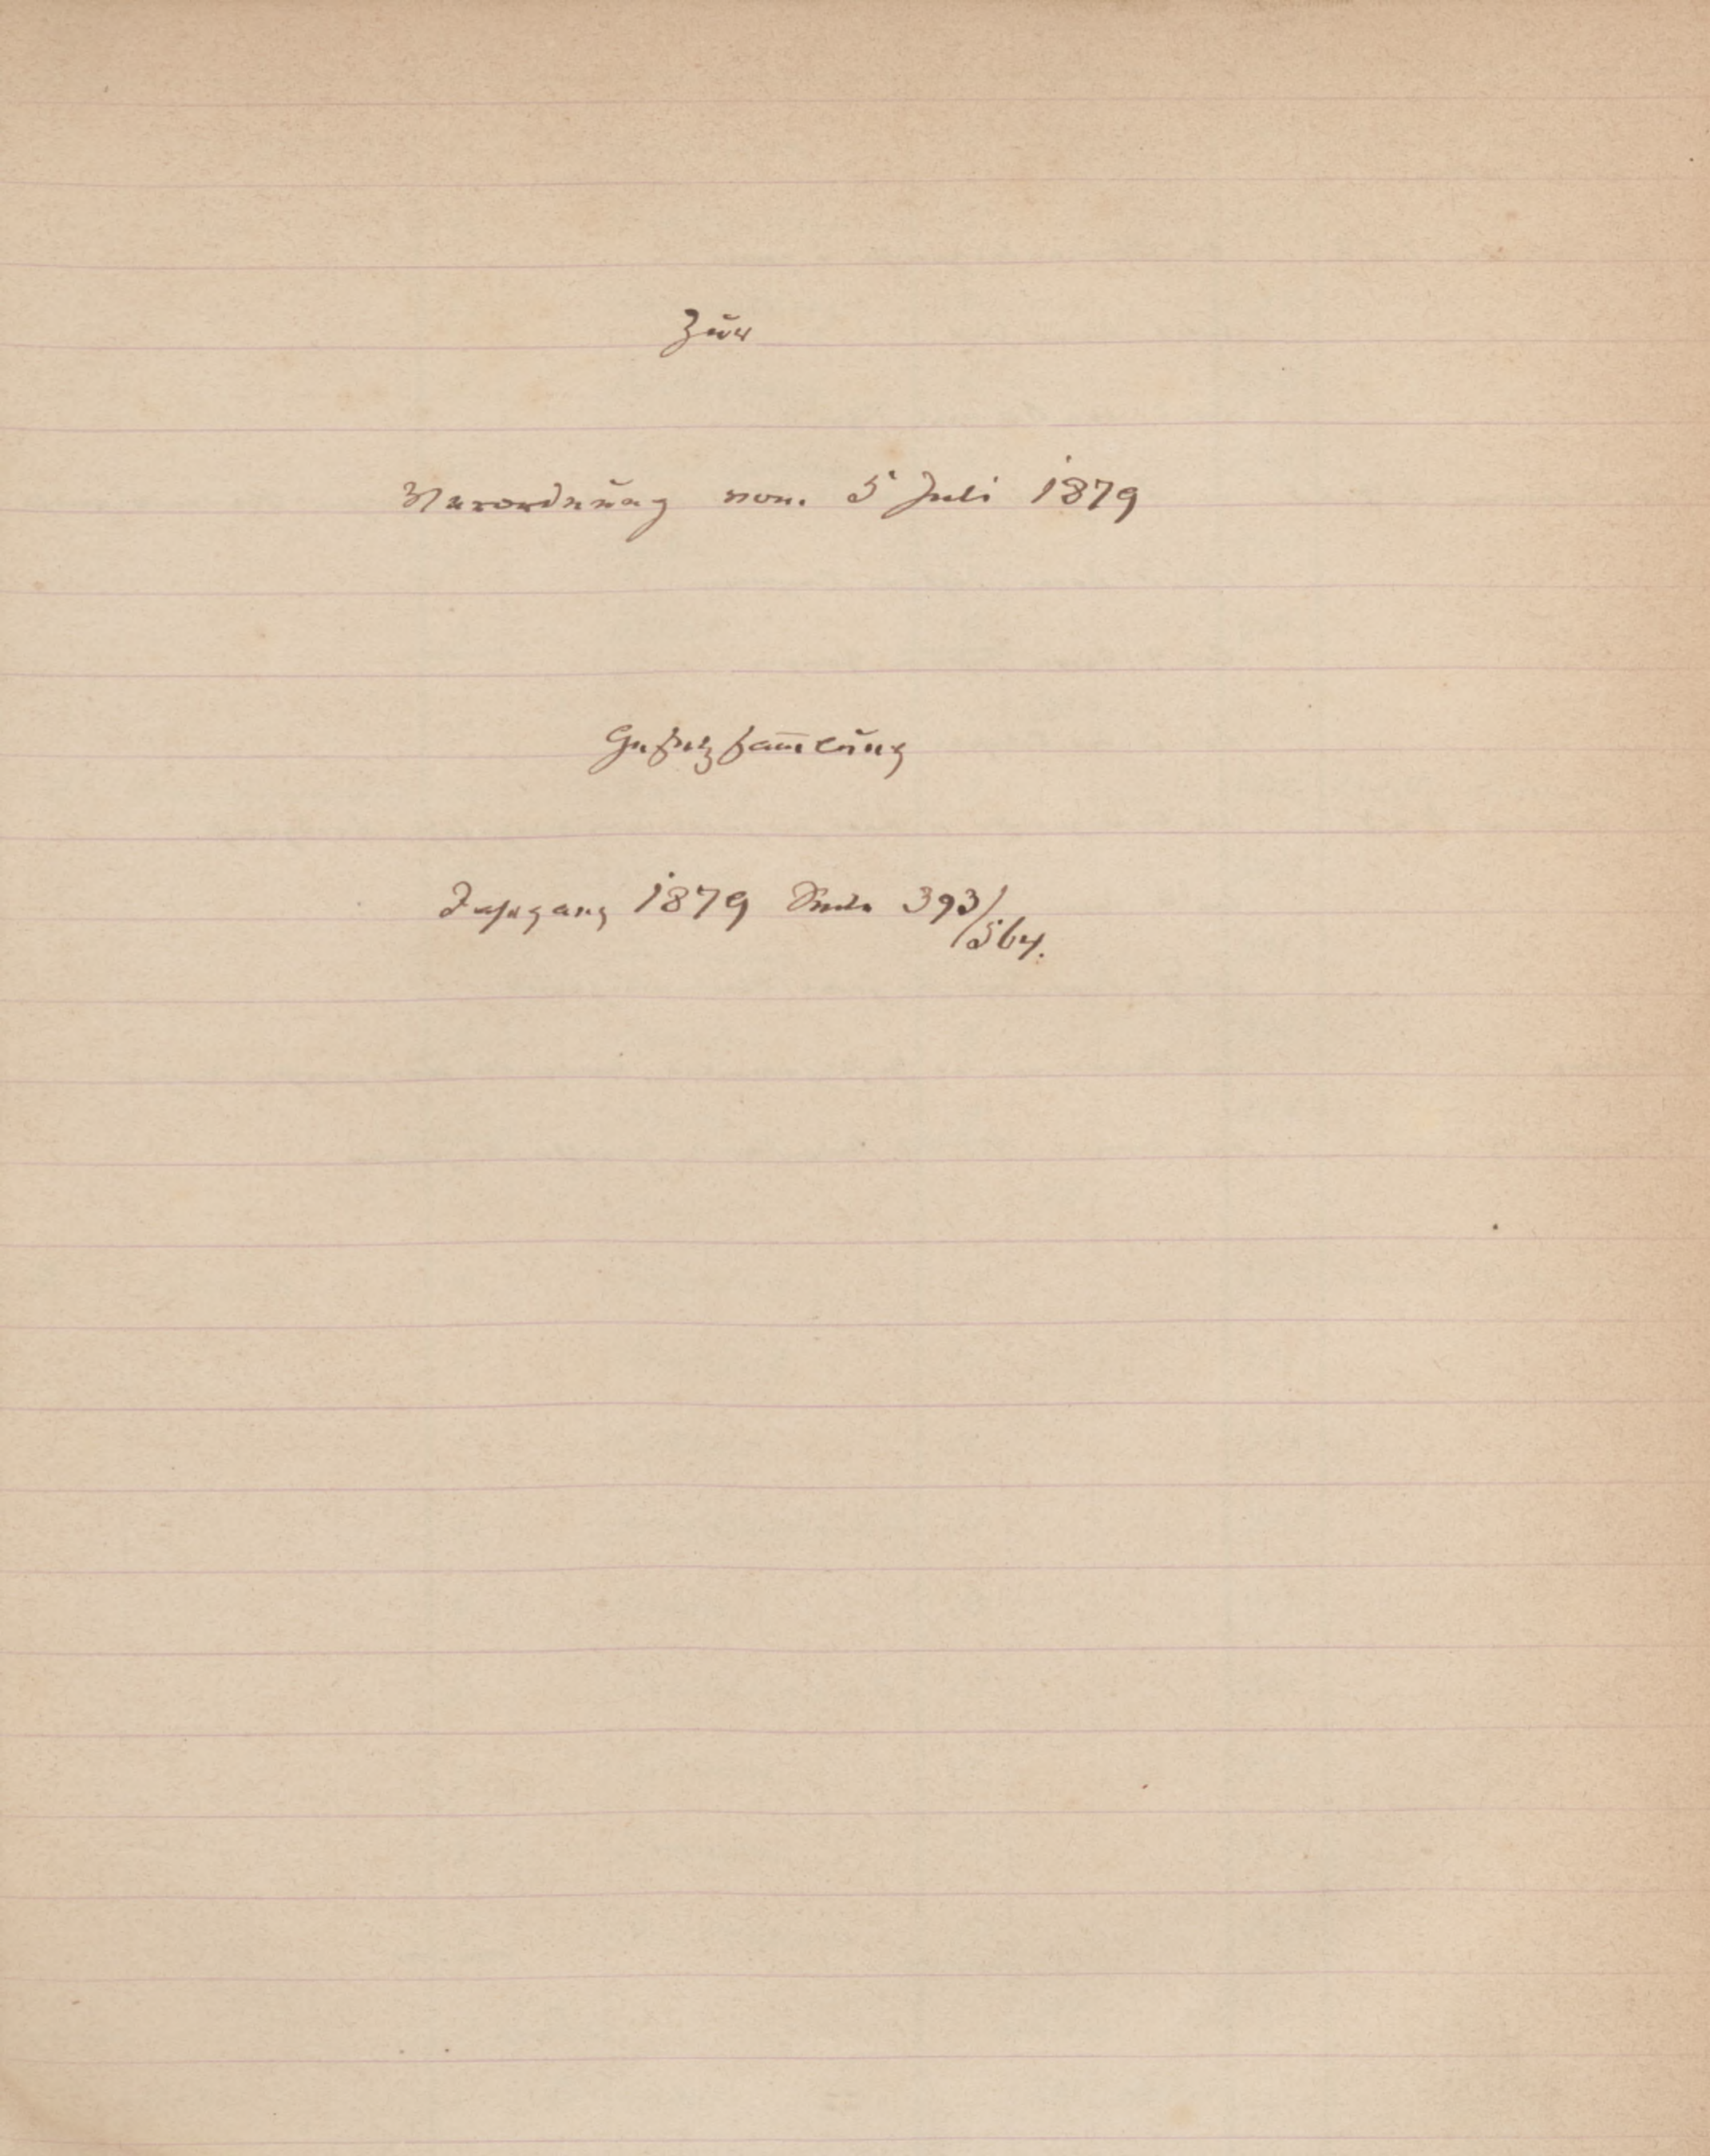 Zur
Verordnung vom 5 Juli 1879
Gesetzsam̄lung
Jahrgang 1879 Seite 393/564.